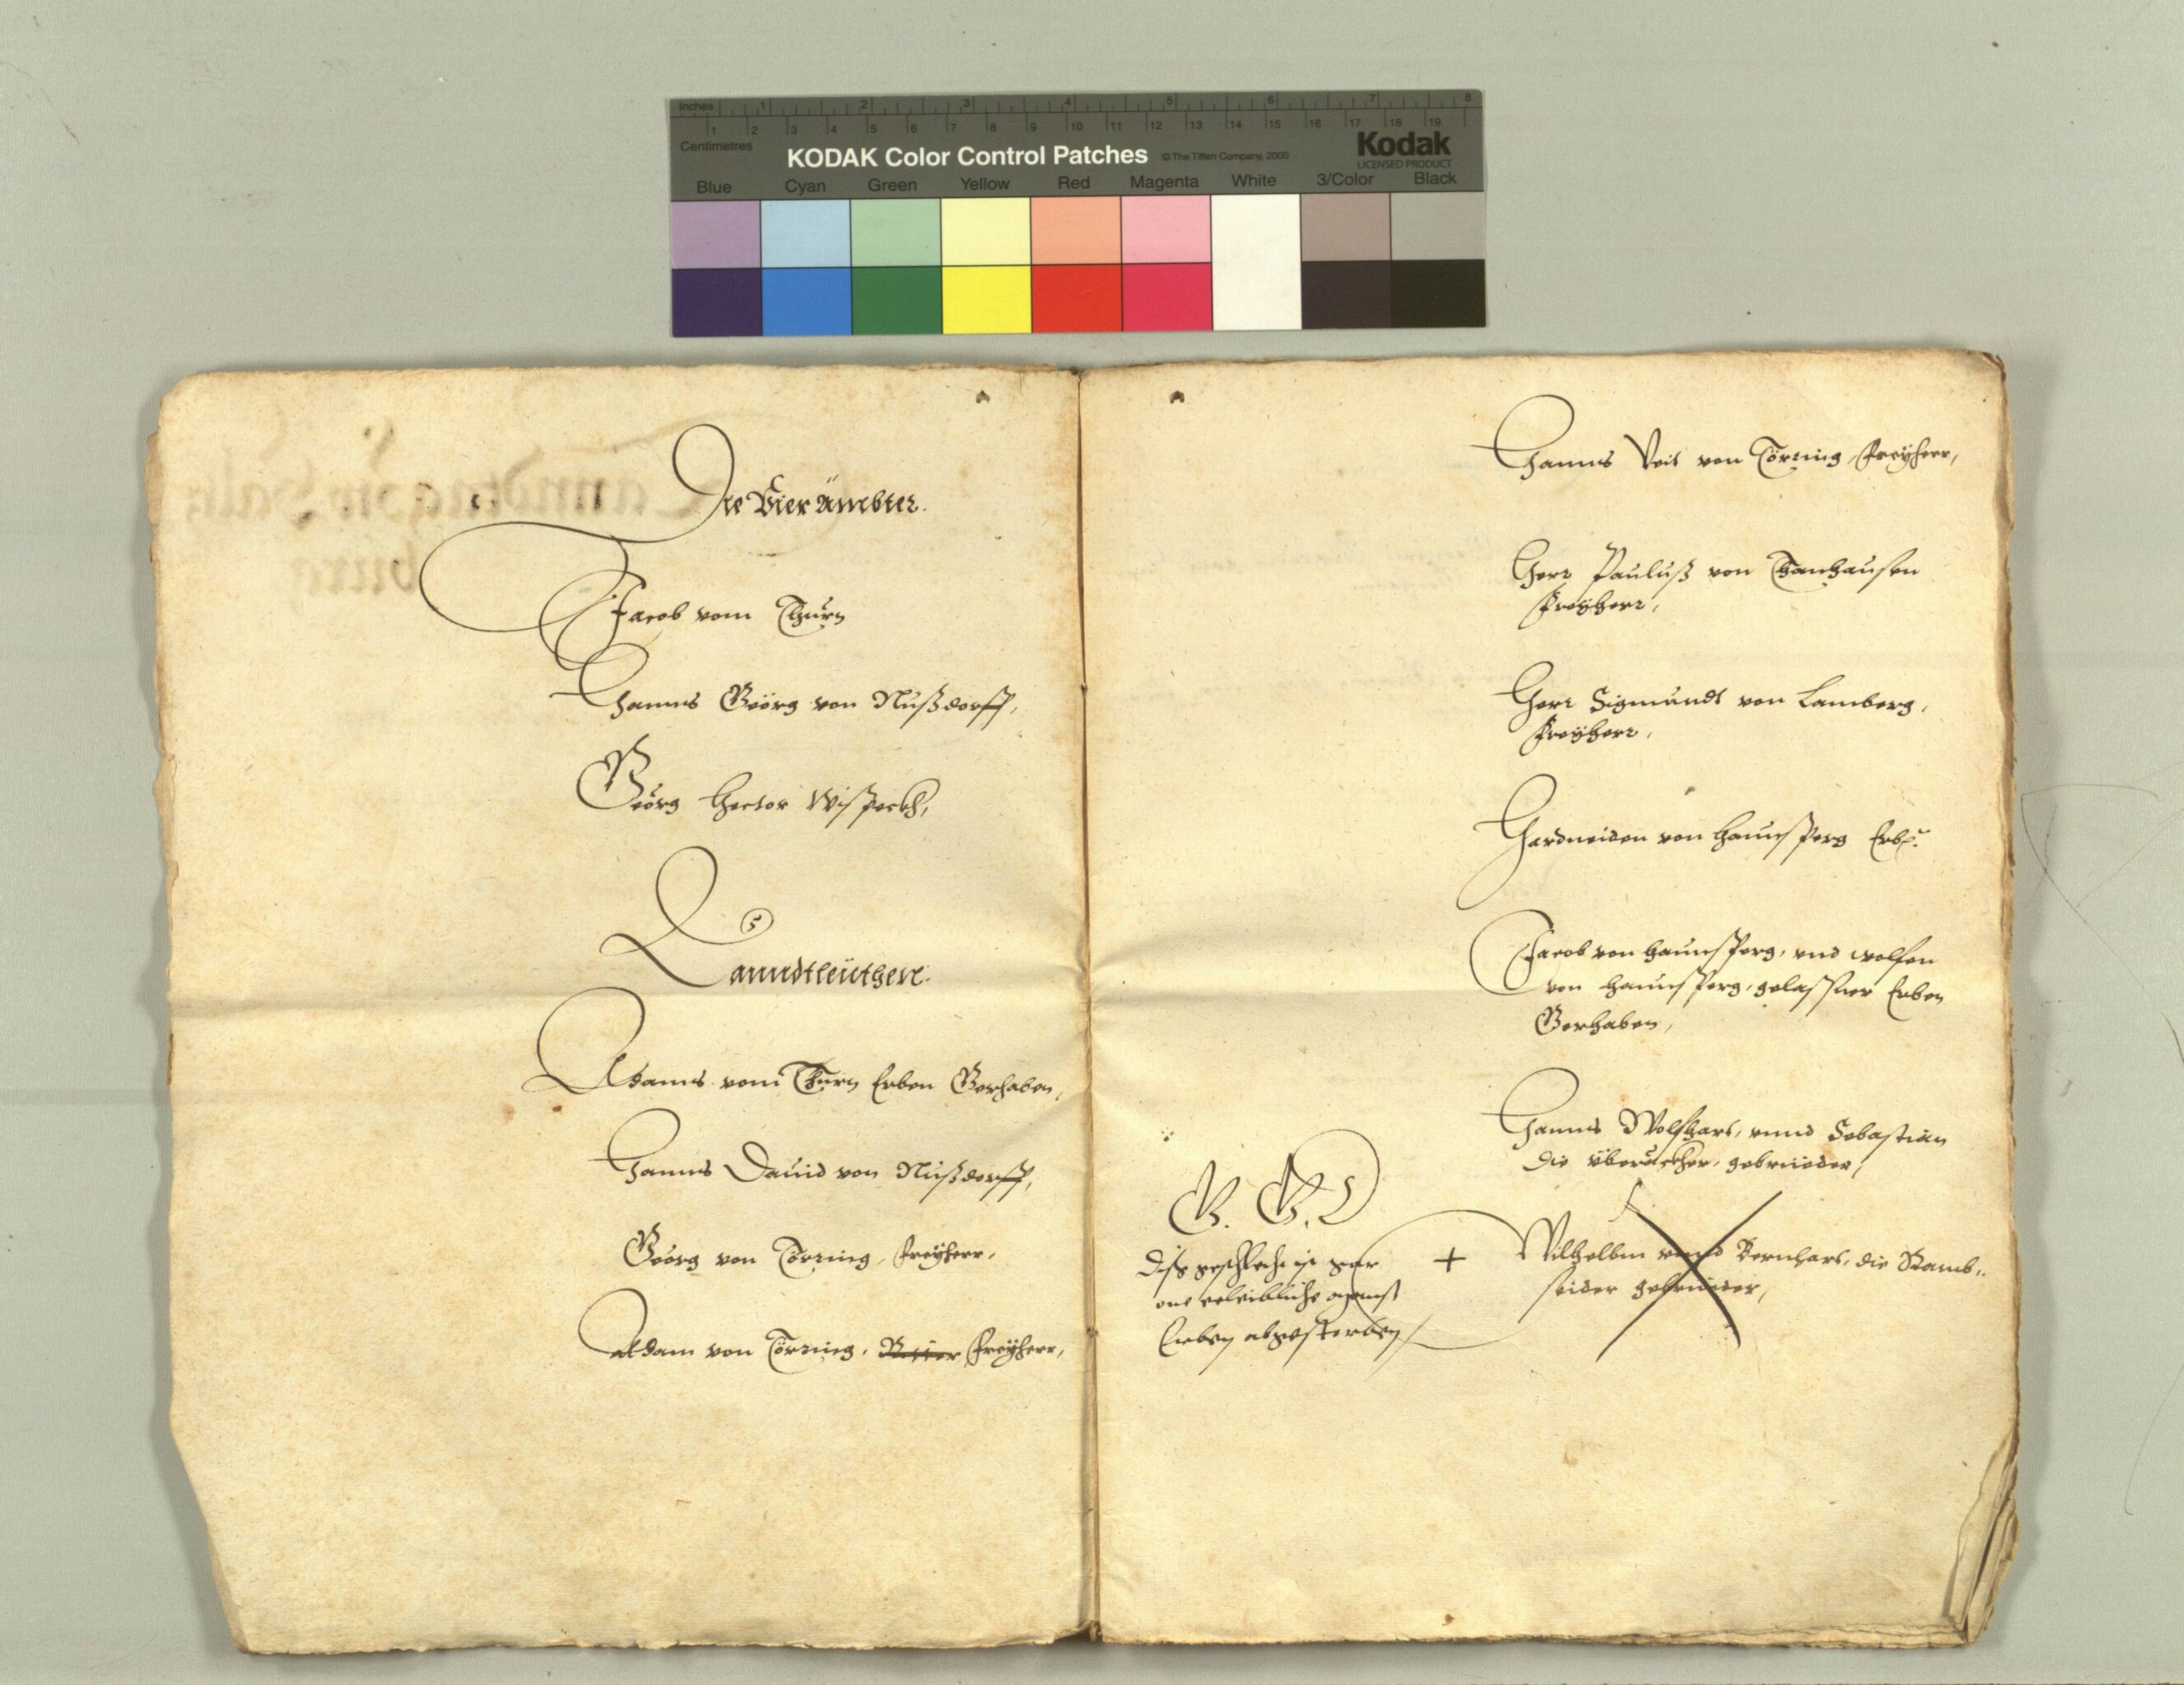 Inches 1 2 3 4 5 6 7 8
1 2 3 4 5 6 7 8 9 10 11 12 13 14 15 16 17 18 19
Centimetres
KODAK Color Control Patches © The Tiffen Company, 2000 Kodak
LICENSED PRODUCT
Blue Cyan Green Yellow Red Magenta White 3/Color Black
Die Vier ämbter.
Jacob vom Thurn
Hanns Geörg von Nußdorff,
Geörg Hector Wißpeckh,
Lanndtleüthen.
Adams vom Thurn Erben Gerhaben,
Hanns Dauid von Nußdorff,
Geörg von Törring, Freyherr,
Adam von Törring, Freyherr,
Hanns Veit von Törring, Freyherr,
Herr Pauluß von Thanhausen
Freyherr,
Herr Sigmundt von Lamberg,
Freyherr,
Hardneiden von Haunsperg Erb.
Jacob von Haunsperg, vnd wolfen
von Haunsperg, gelaßner Erben
Gerhaben,
Hanns Wolfhart, vnnd Sebastian
die überackher, gebrüeder,
G. G.
Diß geschlecht ist gar
one eeleibliche
Erben abgestorben
+ Wilhelbm vnnd Bernhart, die Ramb..
seider gebrüeder,